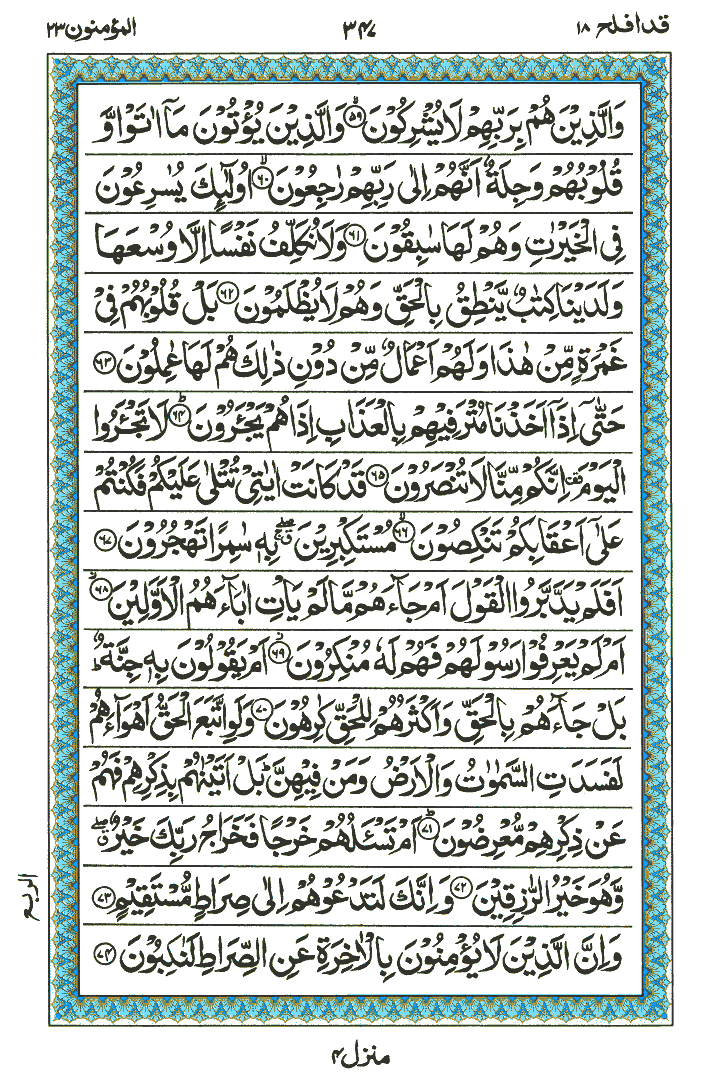 قد افلح ١٨
٣٤٧
المؤمنون ٢٣
وَالَّذِيْنَ هُمْ بِرَبِّهِمْ لَا يُشْرِكُوْنَ ﴿۵۹﴾ۙ وَالَّذِيْنَ يُؤْتُوْنَ مَاۤ اٰتَوْا وَّ
قُلُوْبُهُمْ وَجِلَةٌ اَنَّهُمْ اِلٰى رَبِّهِمْ رٰجِعُوْنَ ﴿۶۰﴾ۙ اُولٰٓئِكَ يُسٰرِعُوْنَ
فِى الْخَيْرٰتِ وَهُمْ لَهَا سٰبِقُوْنَ ﴿۶۱﴾ وَلَا نُكَلِّفُ نَفْسًا اِلَّا وُسْعَهَا
وَلَدَيْنَا كِتٰبٌ يَّنْطِقُ بِالْحَقِّ وَهُمْ لَا يُظْلَمُوْنَ ﴿۶۲﴾ بَلْ قُلُوْبُهُمْ فِىْ
غَمْرَةٍ مِّنْ هٰذَا وَلَهُمْ اَعْمَالٌ مِّنْ دُوْنِ ذٰلِكَ هُمْ لَهَا عٰمِلُوْنَ ﴿۶۳﴾
حَتّٰىٓ اِذَاۤ اَخَذْنَا مُتْرَفِيْهِمْ بِالْعَذَابِ اِذَا هُمْ يَجْـَٔرُوْنَ ﴿۶۴﴾ؕ لَا تَجْـَٔرُوا
الْيَوْمَ ۫ اِنَّكُمْ مِّنَّا لَا تُنْصَرُوْنَ ﴿۶۵﴾ قَدْ كَانَتْ اٰيٰتِىْ تُتْلٰى عَلَيْكُمْ فَكُنْتُمْ
عَلٰٓى اَعْقَابِكُمْ تَنْكِصُوْنَ ﴿۶۶﴾ۙ مُسْتَكْبِرِيْنَ ۖ بِهٖ سٰمِرًا تَهْجُرُوْنَ ﴿۶۷﴾
اَفَلَمْ يَدَّبَّرُوا الْقَوْلَ اَمْ جَآءَهُمْ مَّا لَمْ يَاْتِ اٰبَآءَهُمُ الْاَوَّلِيْنَ ﴿۶۸﴾ۙ
اَمْ لَمْ يَعْرِفُوْا رَسُوْلَهُمْ فَهُمْ لَهٗ مُنْكِرُوْنَ ﴿۶۹﴾ۙ اَمْ يَقُوْلُوْنَ بِهٖ جِنَّةٌ ؕ
بَلْ جَآءَهُمْ بِالْحَقِّ وَاَكْثَرُهُمْ لِلْحَقِّ كٰرِهُوْنَ ﴿۷۰﴾ وَلَوِ اتَّبَعَ الْحَقُّ اَهْوَآءَهُمْ
لَفَسَدَتِ السَّمٰوٰتُ وَالْاَرْضُ وَمَنْ فِيْهِنَّ ؕ بَلْ اَتَيْنٰهُمْ بِذِكْرِهِمْ فَهُمْ
عَنْ ذِكْرِهِمْ مُّعْرِضُوْنَ ﴿۷۱﴾ؕ اَمْ تَسْـَٔلُهُمْ خَرْجًا فَخَرَاجُ رَبِّكَ خَيْرٌ ۖ
وَّهُوَ خَيْرُ الرّٰزِقِيْنَ ﴿۷۲﴾ وَاِنَّكَ لَتَدْعُوْهُمْ اِلٰى صِرَاطٍ مُّسْتَقِيْمٍ ﴿۷۳﴾
وَاِنَّ الَّذِيْنَ لَا يُؤْمِنُوْنَ بِالْاٰخِرَةِ عَنِ الصِّرَاطِ لَنٰكِبُوْنَ ﴿۷۴﴾
الربع
منزل ۴